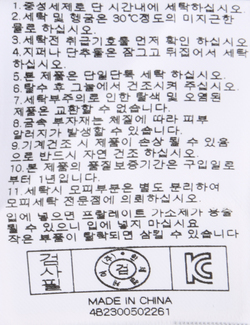 1.중성세제로 단 시간내에 세탁하십시오.
2.세탁 및 헹굼은 30℃정도의 미지근한
물로 하십시오.
3.세탁전 취급기호를 먼저 확인 하십시오
4.지퍼나 단추들은 잠그고 뒤집어서 세탁
하십시오.
5.본 제품은 단일단독 세탁 하십시오.
6.탈수 후 그늘에서 건조시켜 주십시오.
7.세탁부주의로 인한 탈색 및 오염된
제품은 교환할 수 없습니다.
8.금속 부자재는 체질에 따라 피부
알러지가 발생할 수 있습니다.
9.기계건조 시 제품이 손상 될 수 있음
으로 반드시 자연 건조 하십시오.
10.본 제품의 품질보증기간은 구입일로
부터 1년입니다.
11.세탁시 모피부분은 별도 분리하여
모피세탁 전문점에 의뢰하십시오.
입에 넣으면 프탈레이트 가소제가 용출
될 수 있으니 입에 넣지 마십시요
작은 부품이 탈락되면 삼킬 수 있습니다
검사필
검
MADE IN CHINA
482300502261